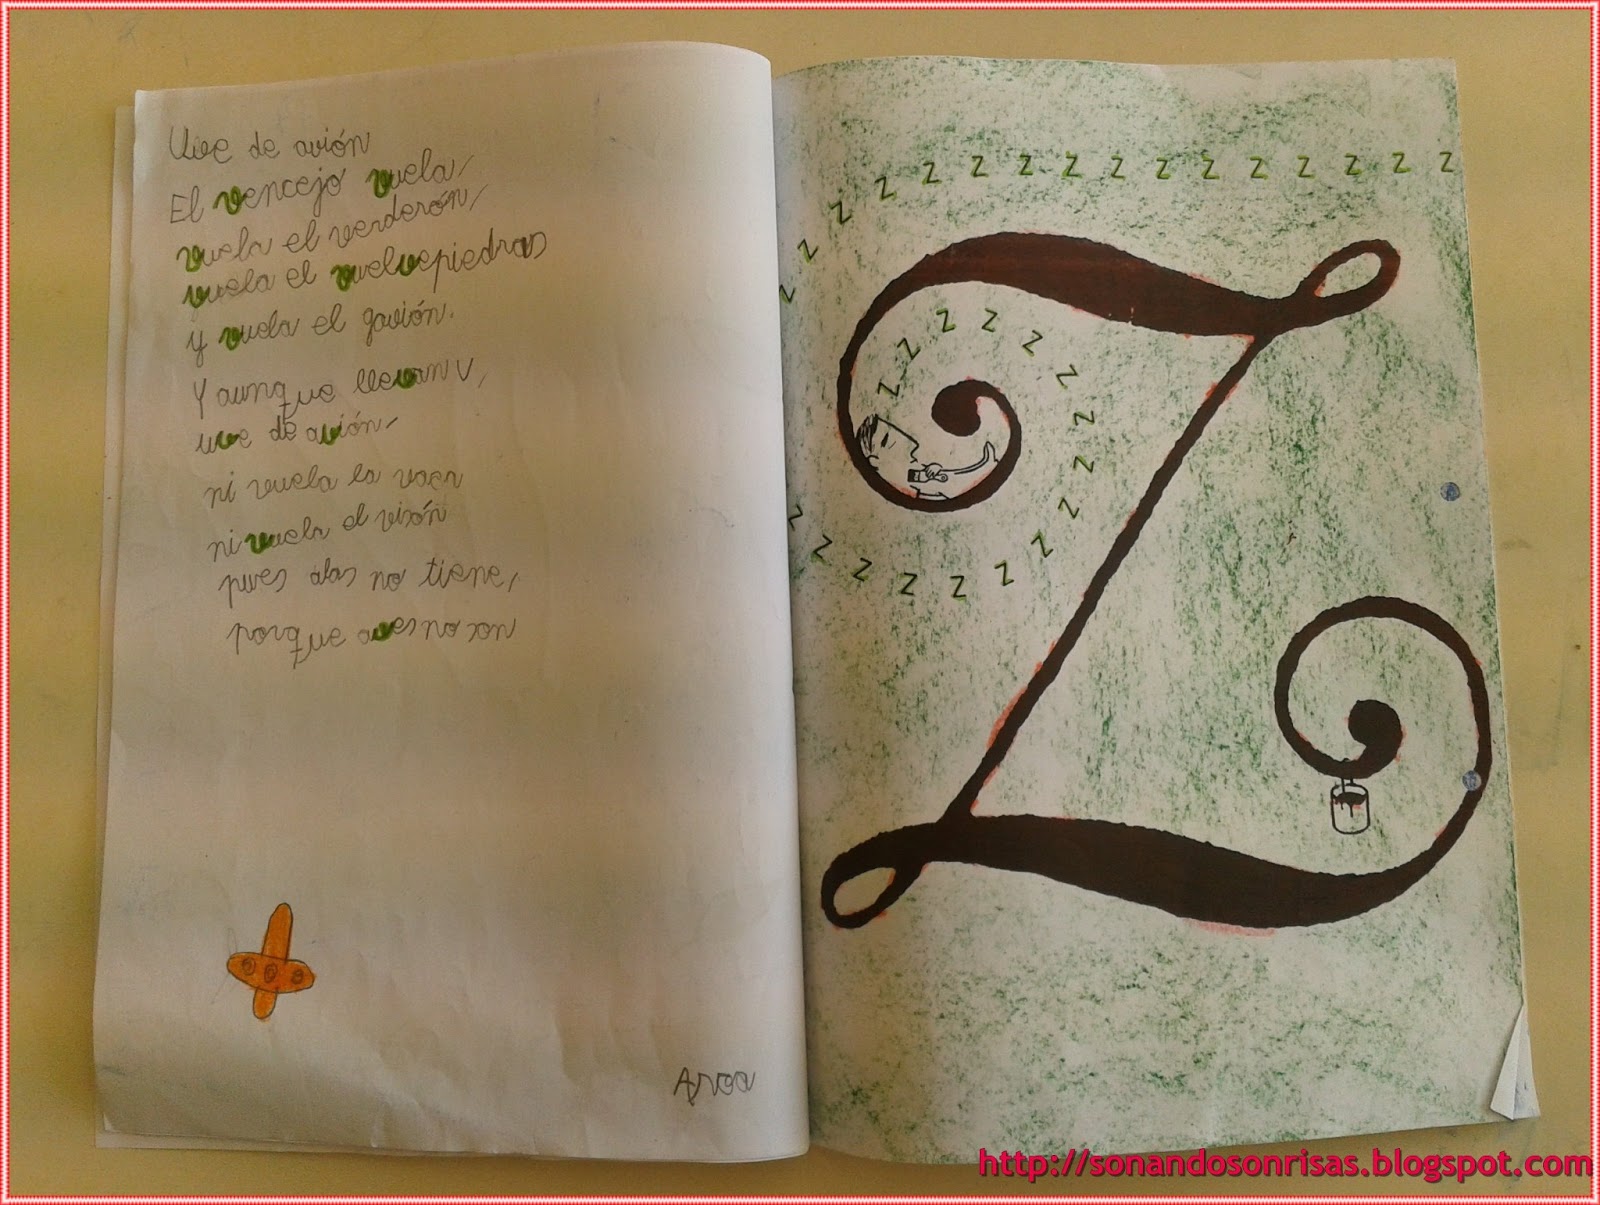 Uve de avión
El vencejo vuela,
vuela el verderón,
vuela el vuelvepiedras
y vuela el gavión.
Y aunque llevan V,
uve de avión,
ni vuela la vaca
ni vuela el visón
pues alas no tiene,
porque aves no son
Aroa
z z z z z z z z z z z z z z z z z
z z z z z z z z z z z z z z z z z z
Z
http://sonandosonrisas.blogspot.com